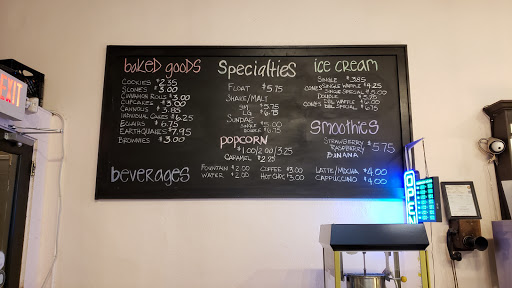 EXIT
baked goods
COOKIES $2.35
SCONES $3.00
CINNAMON ROLLS $3.00
CUPCAKES $3.00
CANNOLIS $3.85
INDIVIDUAL CAKES $6.25
ECLAIRS $6.75
EARTHQUAKES $7.95
BROWNIES $3.00
Specialties
FLOAT $5.75
SHAKE/MALT
SM $5.75
LG $6.75
SUNDAE
SINGLE $5.00
DOUBLE $6.75
POPCORN
$1.00/2.00/3.25
CARAMEL $2.25
ICE CREAM
SINGLE $3.85
CONES SINGLE WAFFLE $4.25
SINGLE SPECIAL $5.00
DOUBLE $5.50
CONES DBL WAFFLE $6.00
DBL SPECIAL $6.75
Smoothies
STRAWBERRY
RASPBERRY $5.75
BANANA
beverages
FOUNTAIN $2.00
WATER $2.00
COFFEE $3.00
HOT CHOC $3.00
LATTE/MOCHA $4.00
CAPPUCCINO $4.00
OPEN